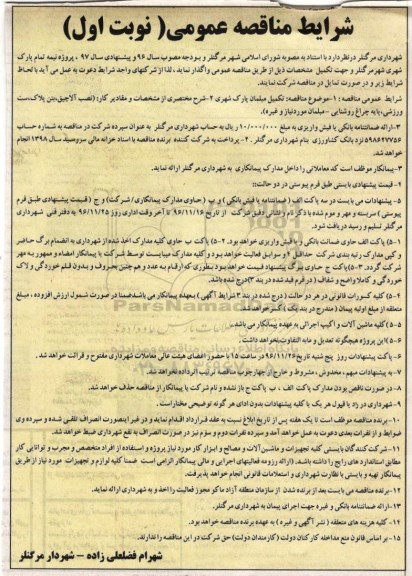 شرایط مناقصه عمومی( نوبت اول)
شهرداری مرگنلر در نظر دارد با استناد به مصوبه شورای اسلامی شهر مرگنلر و بودجه مصوب سال ۹۶ و پیشنهادی سال ۹۷ ، پروژه نیمه تمام پارک
شهری شهر مرگنلر و جهت تکمیل مشخصات ذیل از طریق مناقصه عمومی واگذار نماید ، لذا از شرکتهای واجد شرایط دعوت به عمل می آید با لحاظ
شرایط زیر و در صورت تمایل در مناقصه شرکت نمایند.
شرایط عمومی مناقصه: ۱-موضوع مناقصه: تکمیل مبلمان پارک شهری ۲-شرح مختصری از مشخصات و مقادیر کار: (نصب آلاچیق،بتن پلاک،ست
ورزشی،پایه چراغ روشنایی -مبلمان موردنیاز و غیره).
۳-ارائه ضمانتنامه بانکی یا فیش واریزی به مبلغ ۱۰/۰۰۰/۰۰۰ ریال به حساب شهرداری مرگنلر به عنوان سپرده شرکت در مناقصه به شماره حساب
۵۹۸۶۲۷۷۵۶ نزد بانک کشاورزی بنام شهرداری مرگنلر . ۲- پرداخت به شرکت کننده برنده مناقصه با اسناد خزانه مالی سررسید سال ۱۳۹۸ انجام
خواهد شد.
۳-پیمانکار موظف است کد معاملاتی را داخل مدارک پیمانکاری به شهرداری مرگنلر ارائه نماید.
۴- قیمت پیشنهادی بایستی طبق فرم پیوستی در دو حالت:
۵- پیشنهادات می بایست در سه پاکت الف ( ضمانتنامه یا فیش بانکی ) و ب (حاوی مدارک پیمانکاری/ شرکت) و ج ( قیمت پیشنهادی طبق فرم
پیوستی ) سربسته و مهر و موم شده با ذکر نام و نشانی دقیق شرکت از تاریخ ۹۶/۱۱/۱۶ تا آخر وقت اداری روز ۹۶/۱۱/۲۵ به دفتر فنی شهرداری
مرگنلر تسلیم و رسید دریافت شود.
۵-۱) پاکت الف حاوی ضمانت بانکی و یا فیش واریزی خواهد بود. ۵-۲) پاکت ب حاوی کلیه مدارک اخذ شده از شهرداری به انضمام برگ حاضر
و کپی مدارک رتبه بندی شرکت حداقل ۴ و سوابق فعالیت خواهد بود و کلیه مدارک میبایست توسط شرکت یا پیمانکار امضاء و ممهور به مهر
شرکت گردد. ۵-۳) پاکت ج حاوی برگ پیشنهاد قیمت خواهد بود بطوری که ارقام به عدد و هم چنین بحروف و بدون قلم خوردگی و لاک
خوردگی و کاملا واضح و شفاف ( در فرم قید شده در بند ۳)درج شده باشد.
۵-۴) کلیه کسورات قانونی در هر دو حالت ( درج شده در بند ۳ شرایط آگهی ) بعهده پیمانکار می باشد،ضمنا در صورت شمول ارزش افزوده ، مبلغ
متعلقه از مبلغ اولیه پیمان ( مندرج در بند یک ) کسر خواهد شد.
۵-۵) کلیه ماشین آلات و اکیپ اجرائی به عهده پیمانکار می باشد.
۵-۶)این پروژه هیچگونه تعدیل و مابه التفاوت نخواهد داشت.
۶- پاکت پیشنهادات روز پنج شنبه تاریخ ۹۶/۱۱/۲۶ در ساعت ۱۵ با حضور اعضای هیئت عالی معاملات شهرداری مفتوح و قرائت خواهد شد.
۷- به پیشنهادات مبهم ، مخدوش ، مشروط و خارج از چهارچوب مناقصه ترتیب اثر داده نخواهد شد.
۸- در صورت ناقص بودن مدارک پاکت الف ، ب پاکت ج باز نشده و نام شرکت یا پیمانکار از مناقصه حذف خواهد شد.
۹-شهرداری در راد یا قبول هر یک یا کلیه پیشنهادات بدون ادای هر گونه توضیحی مختار است.
۱۰- برنده مناقصه موظف است تا یک هفته پس از تاریخ ابلاغ نسبت به عقد قرارداد اقدام نماید و در غیر اینصورت انصراف تلقی شده و سپرده وی
ضبط و از نفرات بعدی دعوت به عمل خواهد آمد و سپرده نفرات دوم و سوم نیز در صورت انصراف به نفع شهرداری ضبط خواهد شد.
۱۱-شرکت کنندگان بایستی کلیه تجهیزات و ماشین آلات و مصالح و ابزار کار مورد نیاز پروژه و استفاده از افراد متخصص و مجرب و توانایی کار
مطابق استانداردهای رایج را داشته باشند. (ارائه رزومه فعالیتهای اجرایی و مالی پیمانکار الزامی است ضمنا کلیه لوازم و تجهیزات مورد نیاز از طریق
پیمانکار تهیه و بایستی با نظارت شهرداری و استعلامات قانونی انجام خواهد پذیرفت.
۱۲- برنده مناقصه می بایست بعد از برنده شدن از سازمان منطقه آزاد ماکو مجوز فعالیت را اخذ و به شهرداری ارائه نماید.
۱۳-ارائه ضمانتنامه بانکی و غیره جهت اجرای پیمان به شهرداری مرگنلر.
۱۴- کلیه هزینه های متعلقه ( نشر آگهی و غیره ) به عهده برنده مناقصه خواهد بود.
۱۵- بر اساس قانون منع مداخله کارکنان دولت (کارمندان دولت) حق شرکت در این مناقصه را ندارند.
شهرام فضلعلی زاده - شهردار مرگنلر